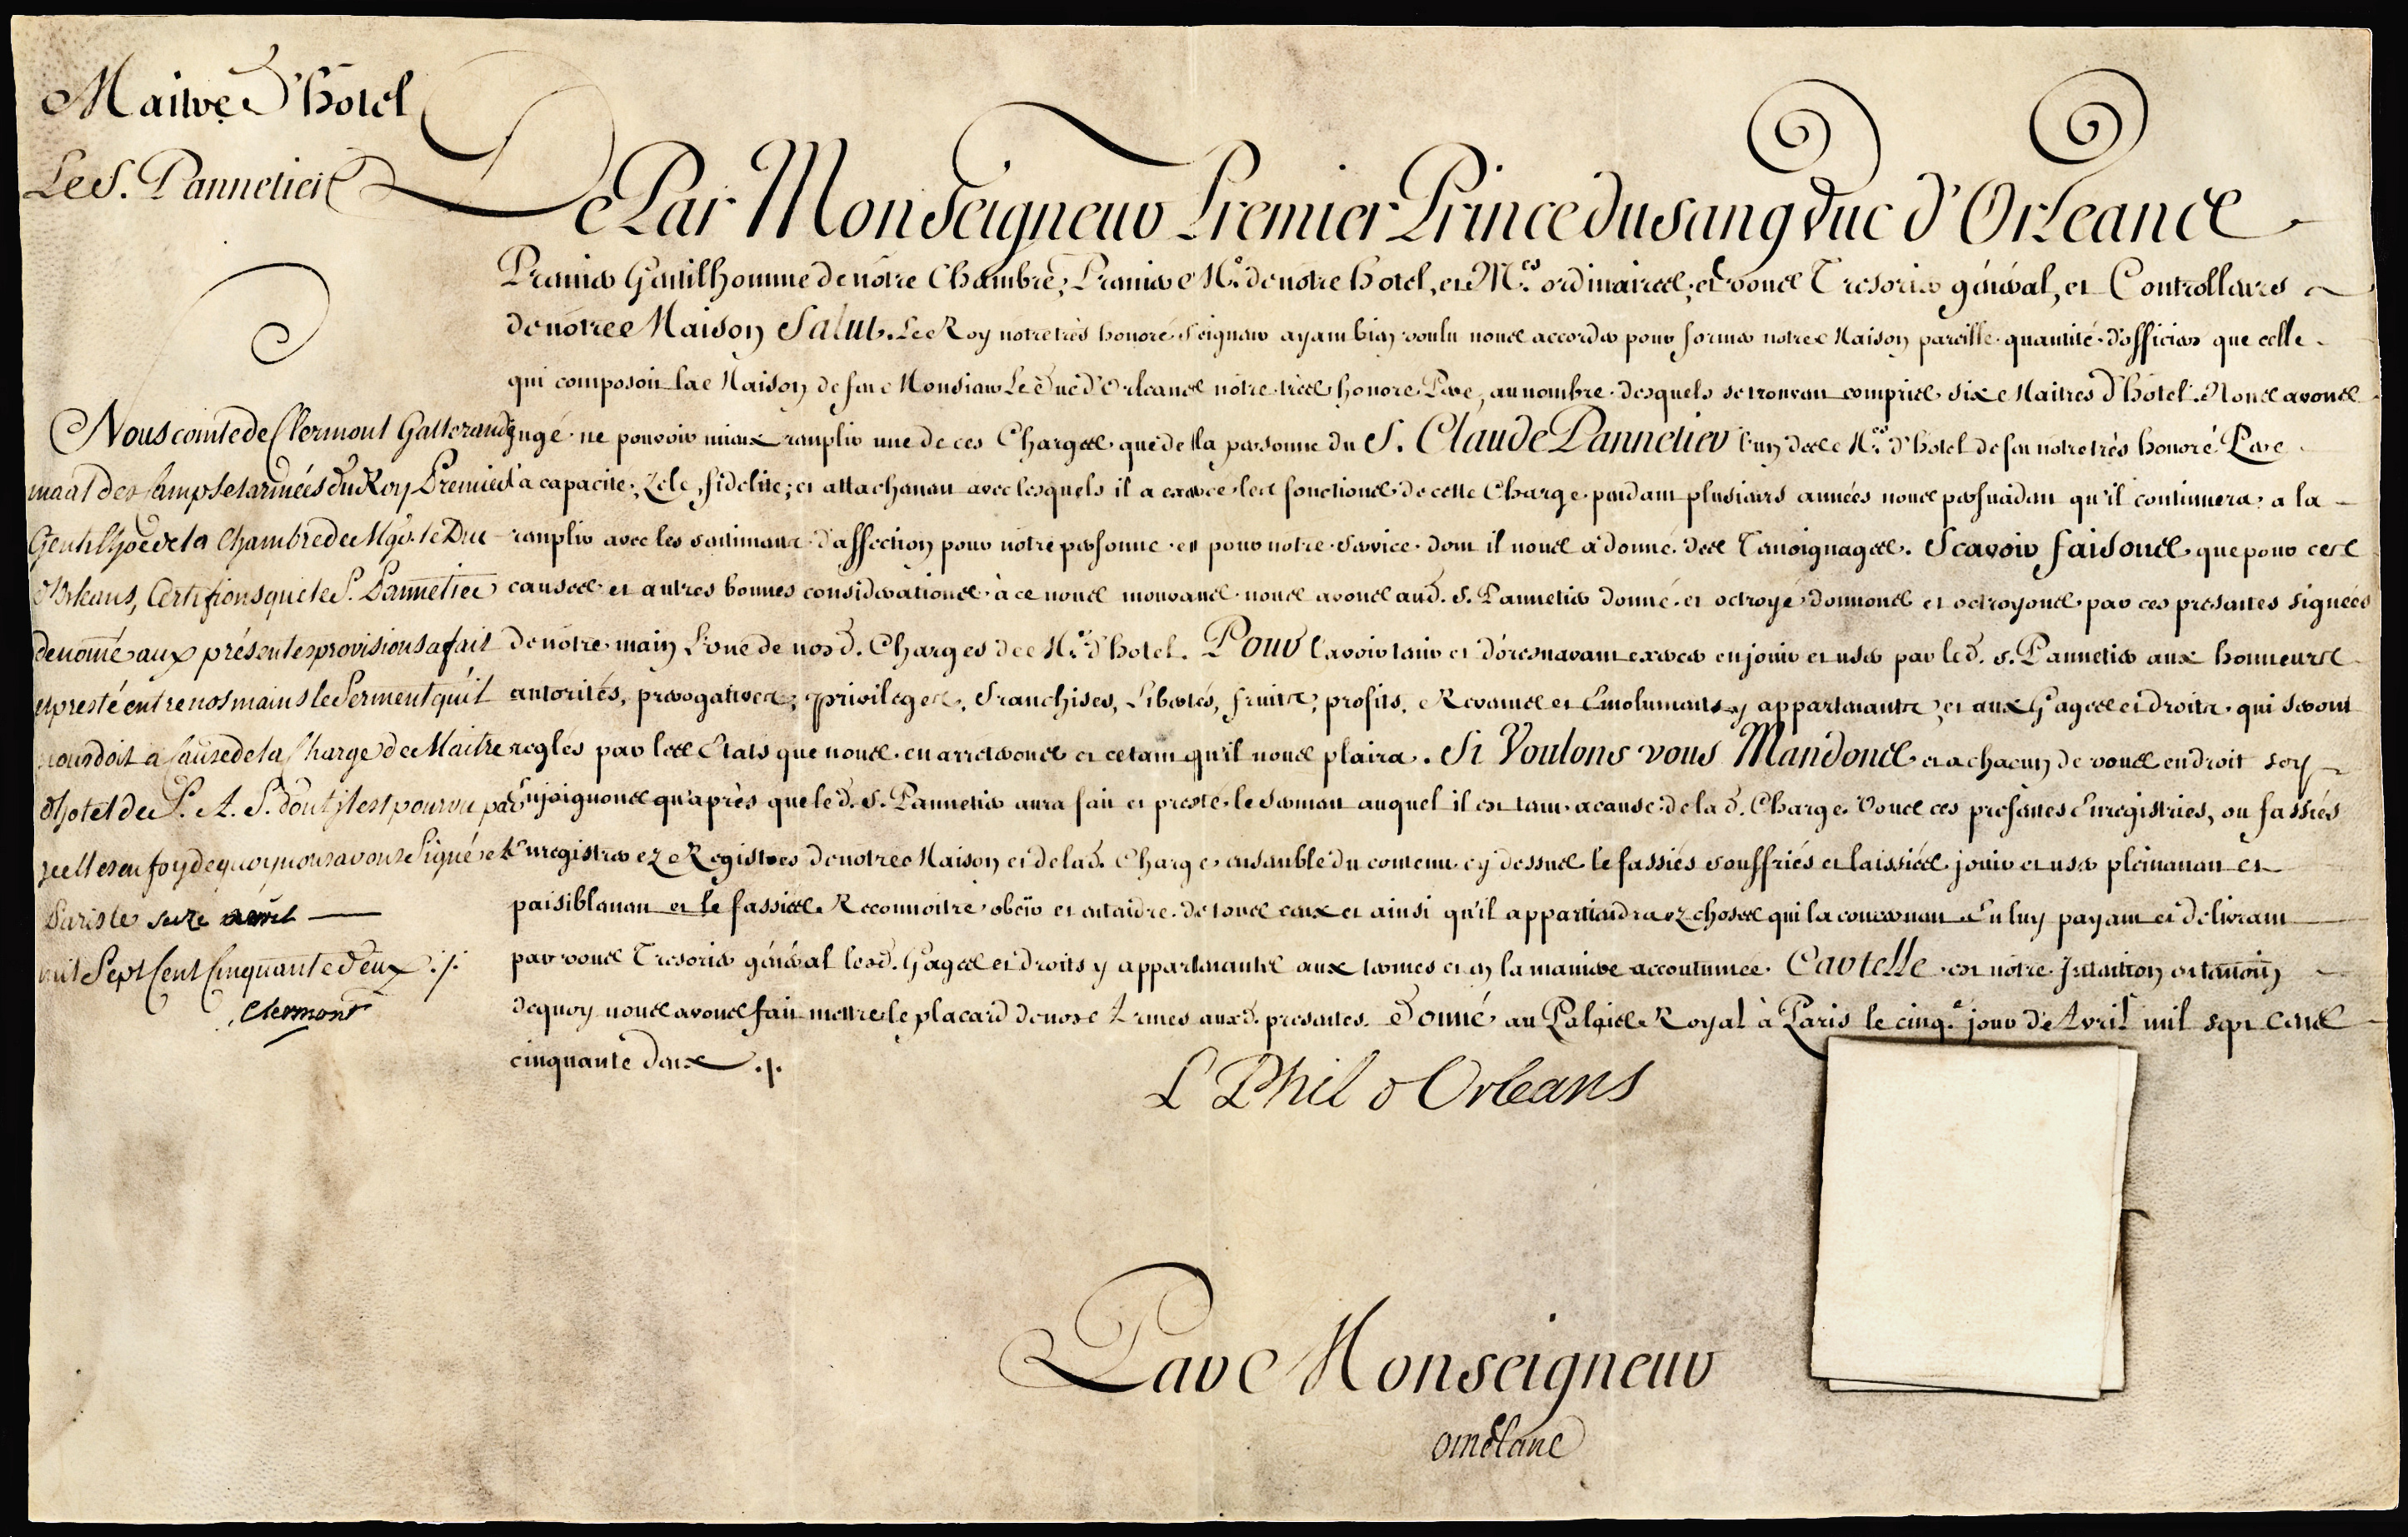 Maitre d'hotel
Le S. Pannetier
De Par Monseigneur Premier Prince du sang Duc d'Orleans
Premier Gentilhomme de nôtre Chambre, Premier M.e de notre hotel, et M.es ordinaires, et vous Tresorier général, et Controlleurs
de notre Maison Salut. Le Roy notre très honoré Seigneur ayant bien voulu nous accorder pour former notre Maison pareille quantité d'officiers que celle
qui composoit la Maison de feu Monsieur Le Duc d'Orleans nôtre très honoré Pere, au nombre desquels se trouvent compris six Maitres d'hôtel. Nous avons
jugé ne pouvoir mieux remplir une de ces Charges que de la personne du S. Claude Pannetier l'un des M.es d'hotel de feu notre très honoré Pere
la capacité, zele, fidelité, et attachement avec lesquels il a exercé les fonctions de cette Charge pendant plusieurs années nous persuadent qu'il continuera a la
remplir avec les sentiments d'affection pour notre personne et pour notre service dont il nous a donné des Temoignages. Scavoir faisons que pour ces
causes et autres bonnes considerations à ce nous mouvans nous avons aud. S. Pannetier donné et octroyé donnons et octroyons par ces presentes signées
de nôtre main L'une de nosd. Charges de M.e d'hotel. Pour l'avoir tenir et d'oresnavant exercer en jouir et user par led. S. Pannetier aux honneurs
autorités, prerogatives, privileges, Franchises, Libertés, fruits, profits, Revenus et Emoluments y appartenants, et aux Gages et droits qui seront
reglés par les Etats que nous en arreterons et ce tant qu'il nous plaira. Si Voulons vous Mandons et a chacun de vous en droit soy
Enjoignons qu'après que led. S. Pannetier aura fait et presté le Serment auquel il est tenu a cause de lad. Charge Vous ces presentes Enregistriés, ou fassiés
Enregistrer ez Registres de notre Maison et de lad. Charge ensemble du contenu cy dessus le fassiés souffriés et laissiés jouir et user pleinement et
paisiblement et le fassiés Reconnoitre obeir et entendre de tous ceux et ainsi qu'il appartiendra ez choses qui la concernent En luy payant et delivrant
par vous Tresorier général lesd. Gages et droits y appartenants aux termes et en la maniere accoutumée. Car telle est nôtre Intention en temoin
de quoy nous avons fait mettre le placard de nos Armes aux d. presentes. Donné au Palais Royal à Paris le cinq.e jour d'Avril mil sept cens
cinquante deux ./.
L Phil d Orleans
Par Monseigneur
Nous comte de Clermont Gallerande
maal des Camps et armées du Roy Premier
Gentilhoe de la Chambre de Mgr. le Duc
d'Orleans, Certifions que le S. Pannetier
denomé aux présentes provisions a fait
et presté entre nos mains le Serment qu'il
nous doit a Cause de la Charge de Maitre
d'hotel de S. A. S. dont il est pourvu par
icelles en foy de quoy nous avons Signé et
Paris le seize avril
mil Sept Cent Cinquante Deux ./.
Clermont